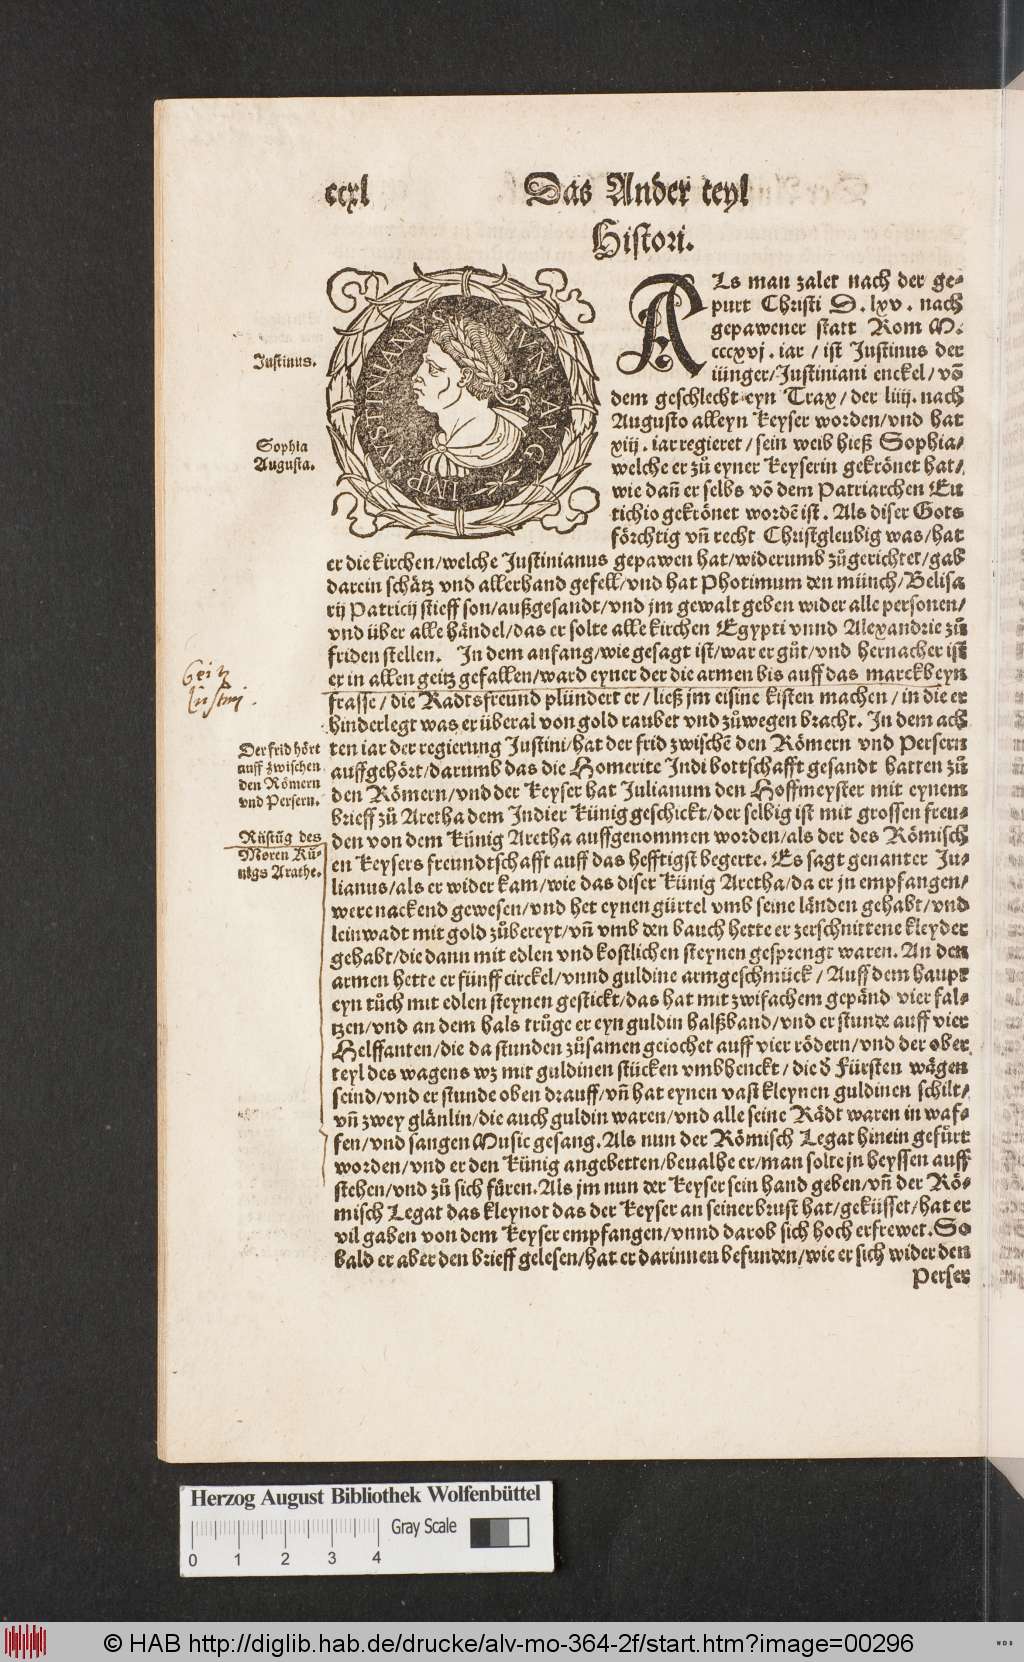 ccxl
Das Ander teyl
Histori.
IVSTINIANVS IVN AVG IMP
Justinus.
Sophia
Augusta.
ALs man zalet nach der ge-
purt Christi D. lxv. nach
gepawener statt Rom M.
cccxvj. iar / ist Justinus der
iünger/Justiniani enckel/võ
dem geschlecht eyn Trax/der liiij. nach
Augusto alleyn Keyser worden/vnd hat
xiij. iar regieret/sein weib hieß Sophia/
welche er zů eyner Keyserin gekrönet hat/
wie dañ er selbs võ dem Patriarchen Eu
tichio gekrönet wordẽ ist. Als diser Gots
förchtig vñ recht Christgleubig was/hat
er die kirchen/welche Justinianus gepawen hat/widerumb zůgerichtet/gab
darein schätz vnd allerhand gefell/vnd hat Photimum den münch/Belisa
rij Patricij stieff son/außgesandt/vnd jm gewalt geben wider alle personen/
vnd über alle händel/das er solte alle kirchen Egypti vnnd Alexandrie zů
friden stellen. In dem anfang/wie gesagt ist/war er gůt/vnd hernacher ist
er in allen geitz gefallen/ward eyner der die armen bis auff das marckbeyn
frasse/die Radtsfreund plündert er/ließ jm eisine kisten machen/in die er
hinderlegt was er überal von gold raubet vnd zůwegen bracht. In dem ach
ten iar der regierung Justini/hat der frid zwischẽ den Römern vnd Persern
auffgehört/darumb das die Homerite Indi bottschafft gesandt hatten zů
den Römern/vnd der Keyser hat Julianum den Hoffmeyster mit eynem
brieff zů Aretha dem Indier Künig geschickt/der selbig ist mit grossen freu-
den von dem Künig Aretha auffgenommen worden/als der des Römisch
en Keysers freundtschafft auff das hefftigst begerte. Es sagt genanter Ju-
lianus/als er wider kam/wie das diser Künig Aretha/da er jn empfangen/
were nackend gewesen/vnd het eynen gürtel vmb seine länden gehabt/vnd
leinwadt mit gold zůbereyt/vñ vmb den bauch hette er zerschnittene kleyder
gehabt/die dann mit edlen vnd kostlichen steynen gesprengt waren. An den
armen hette er fünff circkel/vnnd guldine armgeschmück/Auff dem haupt
eyn tůch mit edlen steynen gestickt/das hat mit zwifachem gepänd vier fal-
tzen/vnd an dem hals trůge er eyn guldin halßband/vnd er stunde auff vier
Helffanten/die da stunden zůsamen geiochet auff vier rödern/vnd der ober
teyl des wagens wz mit guldinen stücken vmbhenckt/die d' Fürsten wägen
seind/vnd er stunde oben drauff/vñ hat eynen vast kleynen guldinen schilt/
vñ zwey glänlin/die auch guldin waren/vnd alle seine Rädt waren in waf-
fen/vnd sangen Music gesang. Als nun der Römisch Legat hinein gefürt
worden/vnd er den Künig angebetten/beualhe er/man solte jn heyssen auff
stehen/vnd zů sich füren. Als jm nun der Keyser sein hand geben/vñ der Rö-
misch Legat das kleynot das der Keyser an seiner brust hat/geküsset/hat er
vil gaben von dem Keyser empfangen/vnnd darob sich hoch erfrewet. So
bald er aber den brieff gelesen/hat er darinnen befunden/wie er sich wider den
Perser
Geitz
Justinj.
Der frid hört
auff zwischen
den Römern
vnd Persern.
Rüstũg des
Moren Kü-
nigs Arathe.
Herzog August Bibliothek Wolfenbüttel
Gray Scale
0 1 2 3 4
© HAB http://diglib.hab.de/drucke/alv-mo-364-2f/start.htm?image=00296